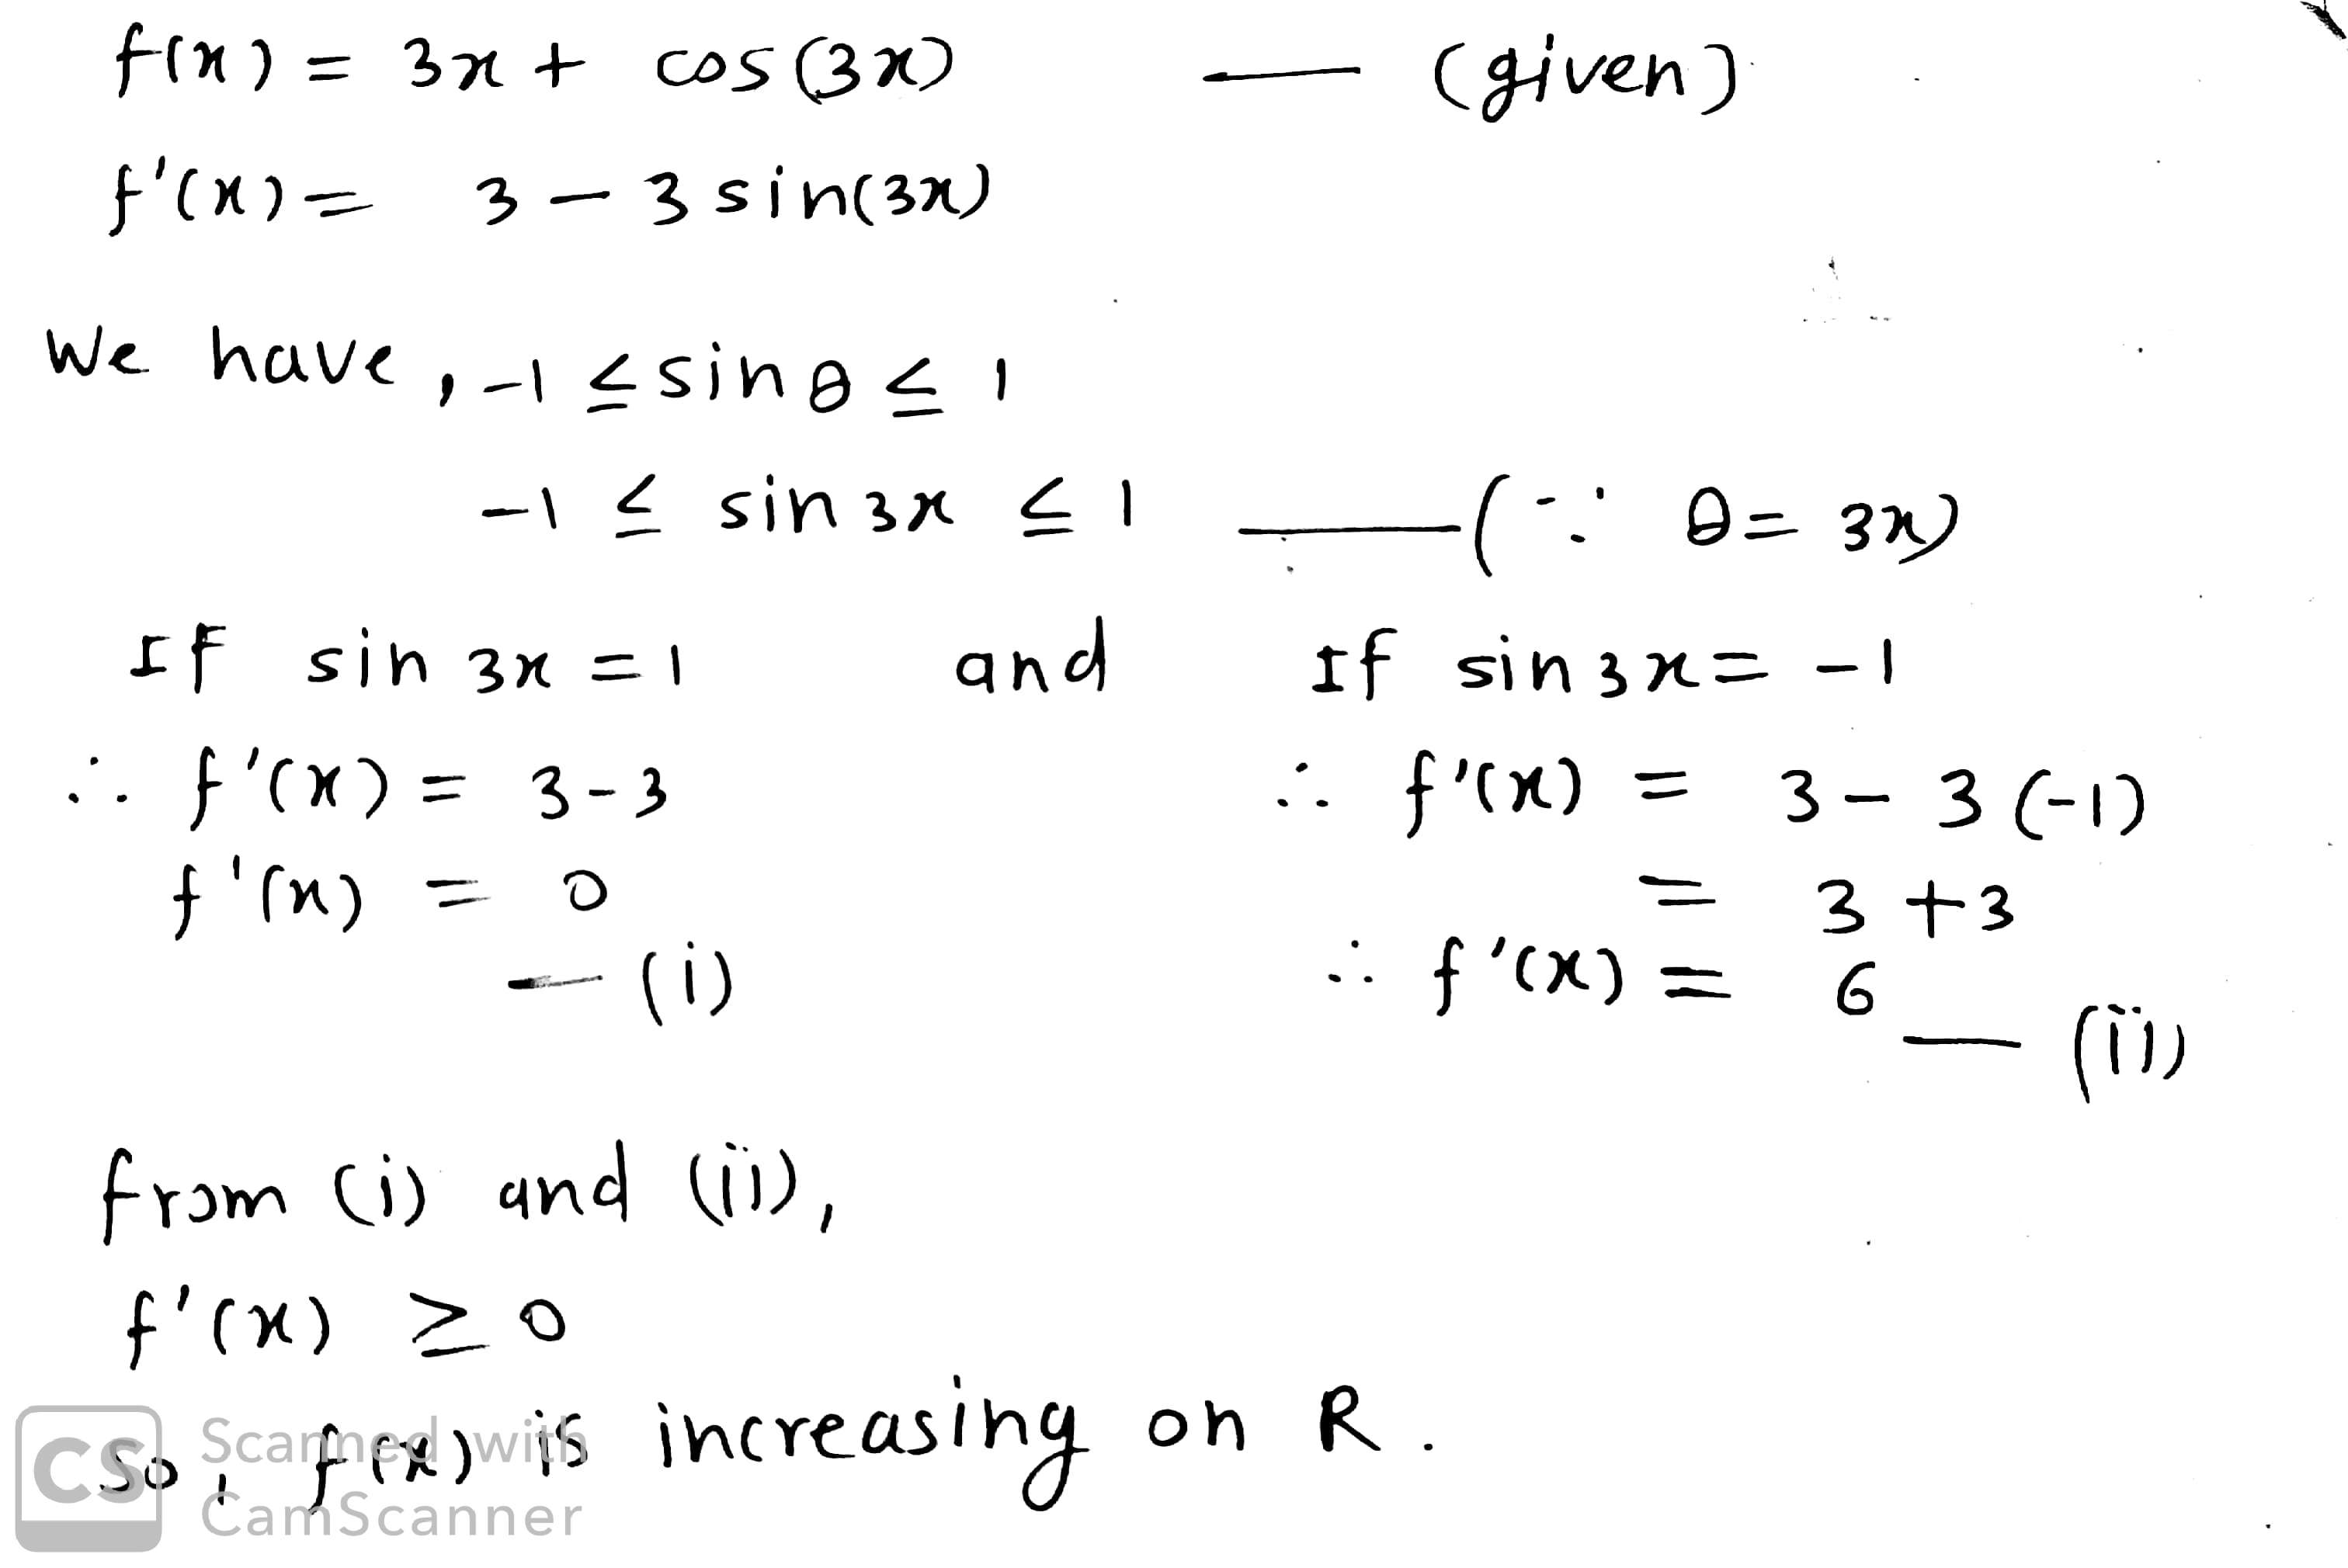 f(x) = 3x + cos(3x) — (given)
f'(x) = 3 - 3 sin(3x)
We have, -1 ≤ sin θ ≤ 1
-1 ≤ sin 3x ≤ 1 — (∵ θ = 3x)
If sin 3x = 1 and If sin 3x = -1
∴ f'(x) = 3-3 ∴ f'(x) = 3 - 3(-1)
f'(x) = 0 = 3 + 3
— (i) ∴ f'(x) = 6
— (ii)
from (i) and (ii),
f'(x) ≥ 0
So, f(x) is increasing on R.
CS Scanned with
CamScanner